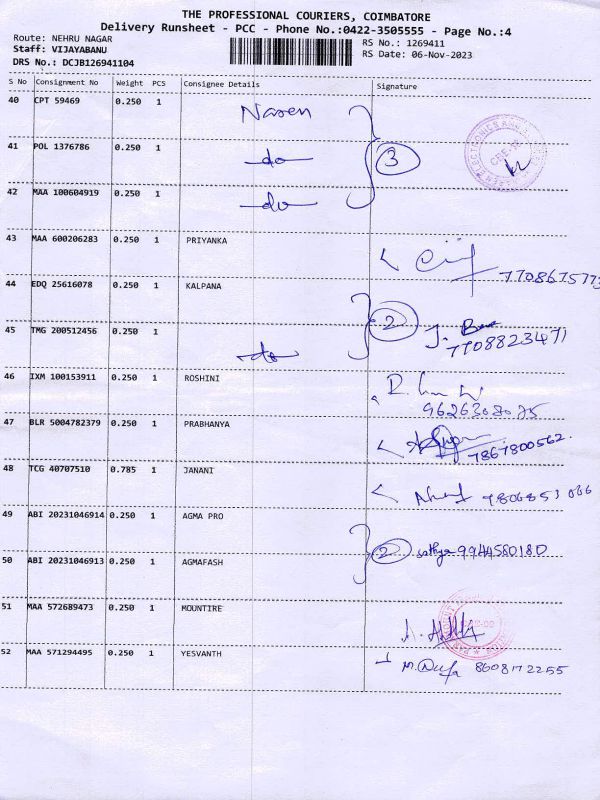 THE PROFESSIONAL COURIERS, COIMBATORE
Delivery Runsheet - PCC - Phone No.:0422-3505555 - Page No.:4
Route: NEHRU NAGAR
RS No.: 1269411
Staff: VIJAYABANU
RS Date: 06-Nov-2023
DRS No.: DCJB126941104
S No Consignment No Weight PCS Consignee Details Signature
40 CPT 59469 0.250 1 Naren
41 POL 1376786 0.250 1 -do- 3
42 MAA 100604919 0.250 1 -do-
43 MAA 600206283 0.250 1 PRIYANKA
44 EDQ 25616078 0.250 1 KALPANA
2
45 TMG 200512456 0.250 1 -do- 7708823471
46 IXM 100153911 0.250 1 ROSHINI
47 BLR 5004782379 0.250 1 PRABHANYA 7867800562.
48 TCG 40707510 0.785 1 JANANI 7806851066
49 ABI 20231046914 0.250 1 AGMA PRO
2 sathya 9944580180
50 ABI 20231046913 0.250 1 AGMAFASH
51 MAA 572689473 0.250 1 MOUNTIRE
52 MAA 571294495 0.250 1 YESVANTH 8608172255